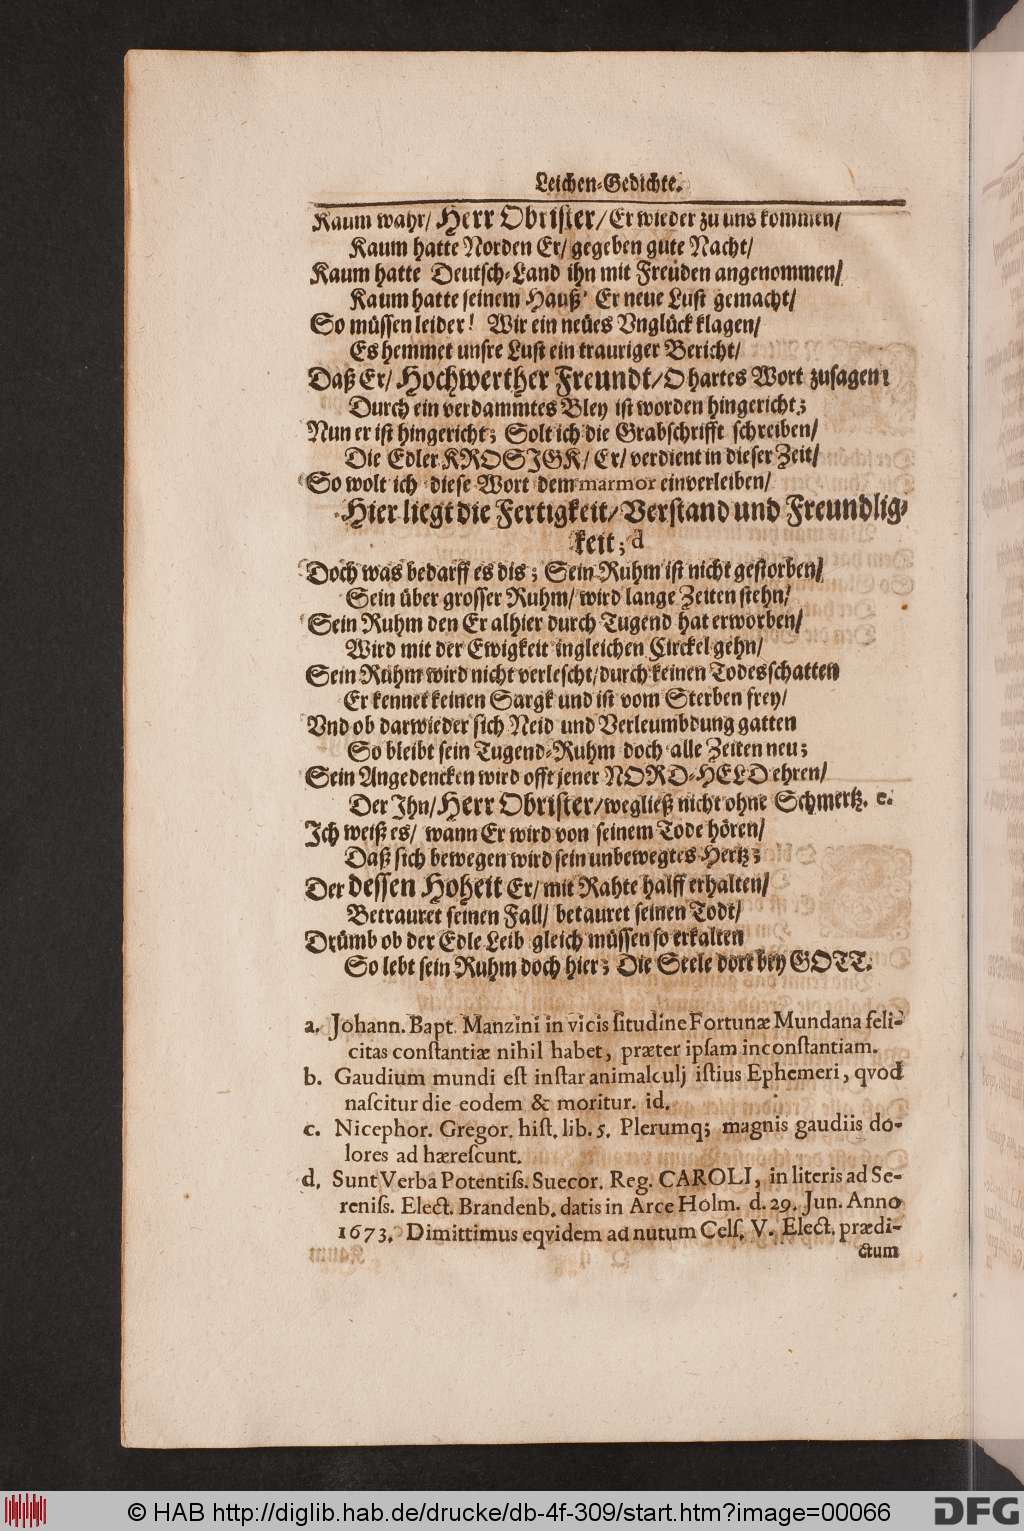 Leichen-Gedichte.
Kaum wahr/ Herr Obrister/ Er wieder zu uns kommen/
Kaum hatte Norden Er/ gegeben gute Nacht/
Kaum hatte Deutsch-Land ihn mit Freuden angenommen/
Kaum hatte seinem Hauß' Er neue Lust gemacht/
So müssen leider! Wir ein neües Vnglück klagen/
Es hemmet unsre Lust ein trauriger Bericht/
Daß Er/ Hochwerther Freundt/ O hartes Wort zusagen!
Durch ein verdammtes Bley ist worden hingericht;
Nun er ist hingericht; Solt ich die Grabschrifft schreiben/
Die Edler KROSIGK/ Er/ verdient in dieser Zeit/
So wolt ich diese Wort dem marmor einverleiben/
Hier liegt die Fertigkeit/ Verstand und Freundlig-
keit; d
Doch was bedarff es dis; Sein Ruhm ist nicht gestorben/
Sein über grosser Ruhm/ wird lange Zeiten stehn/
Sein Ruhm den Er alhier durch Tugend hat erworben/
Wird mit der Ewigkeit ingleichen Circkel gehn/
Sein Ruhm wird nicht verlescht/ durch keinen Todesschatten
Er kennet keinen Sargk und ist vom Sterben frey/
Vnd ob darwieder sich Neid und Verleumbdung gatten
So bleibt sein Tugend-Ruhm doch alle Zeiten neu;
Sein Angedencken wird offt jener NORD-HELD ehren/
Der Ihn/ Herr Obrister/ wegließ nicht ohne Schmertz. e.
Ich weiß es/ wann Er wird von seinem Tode hören/
Daß sich bewegen wird sein unbewegtes Hertz;
Der dessen Hoheit Er/ mit Rahte halff erhalten/
Betrauret seinen Fall/ betauret seinen Todt/
Drümb ob der Edle Leib gleich müssen so erkalten
So lebt sein Ruhm doch hier; Die Seele dort bey GOTT.
a. Johann. Bapt. Manzini in vicis situdine Fortunæ Mundana feli-
citas constantiæ nihil habet, præter ipsam inconstantiam.
b. Gaudium mundi est instar animalculj istius Ephemeri, qvod
nascitur die eodem & moritur. id.
c. Nicephor. Gregor. hist. lib. 5. Plerumq; magnis gaudiis do-
lores ad hærescunt.
d. Sunt Verba Potentiss. Suecor. Reg. CAROLI, in literis ad Se-
reniss. Elect. Brandenb. datis in Arce Holm. d. 29. Jun. Anno
1673. Dimittimus eqvidem ad nutum Cels. V. Elect. prædi-
ctum
© HAB http://diglib.hab.de/drucke/db-4f-309/start.htm?image=00066
DFG